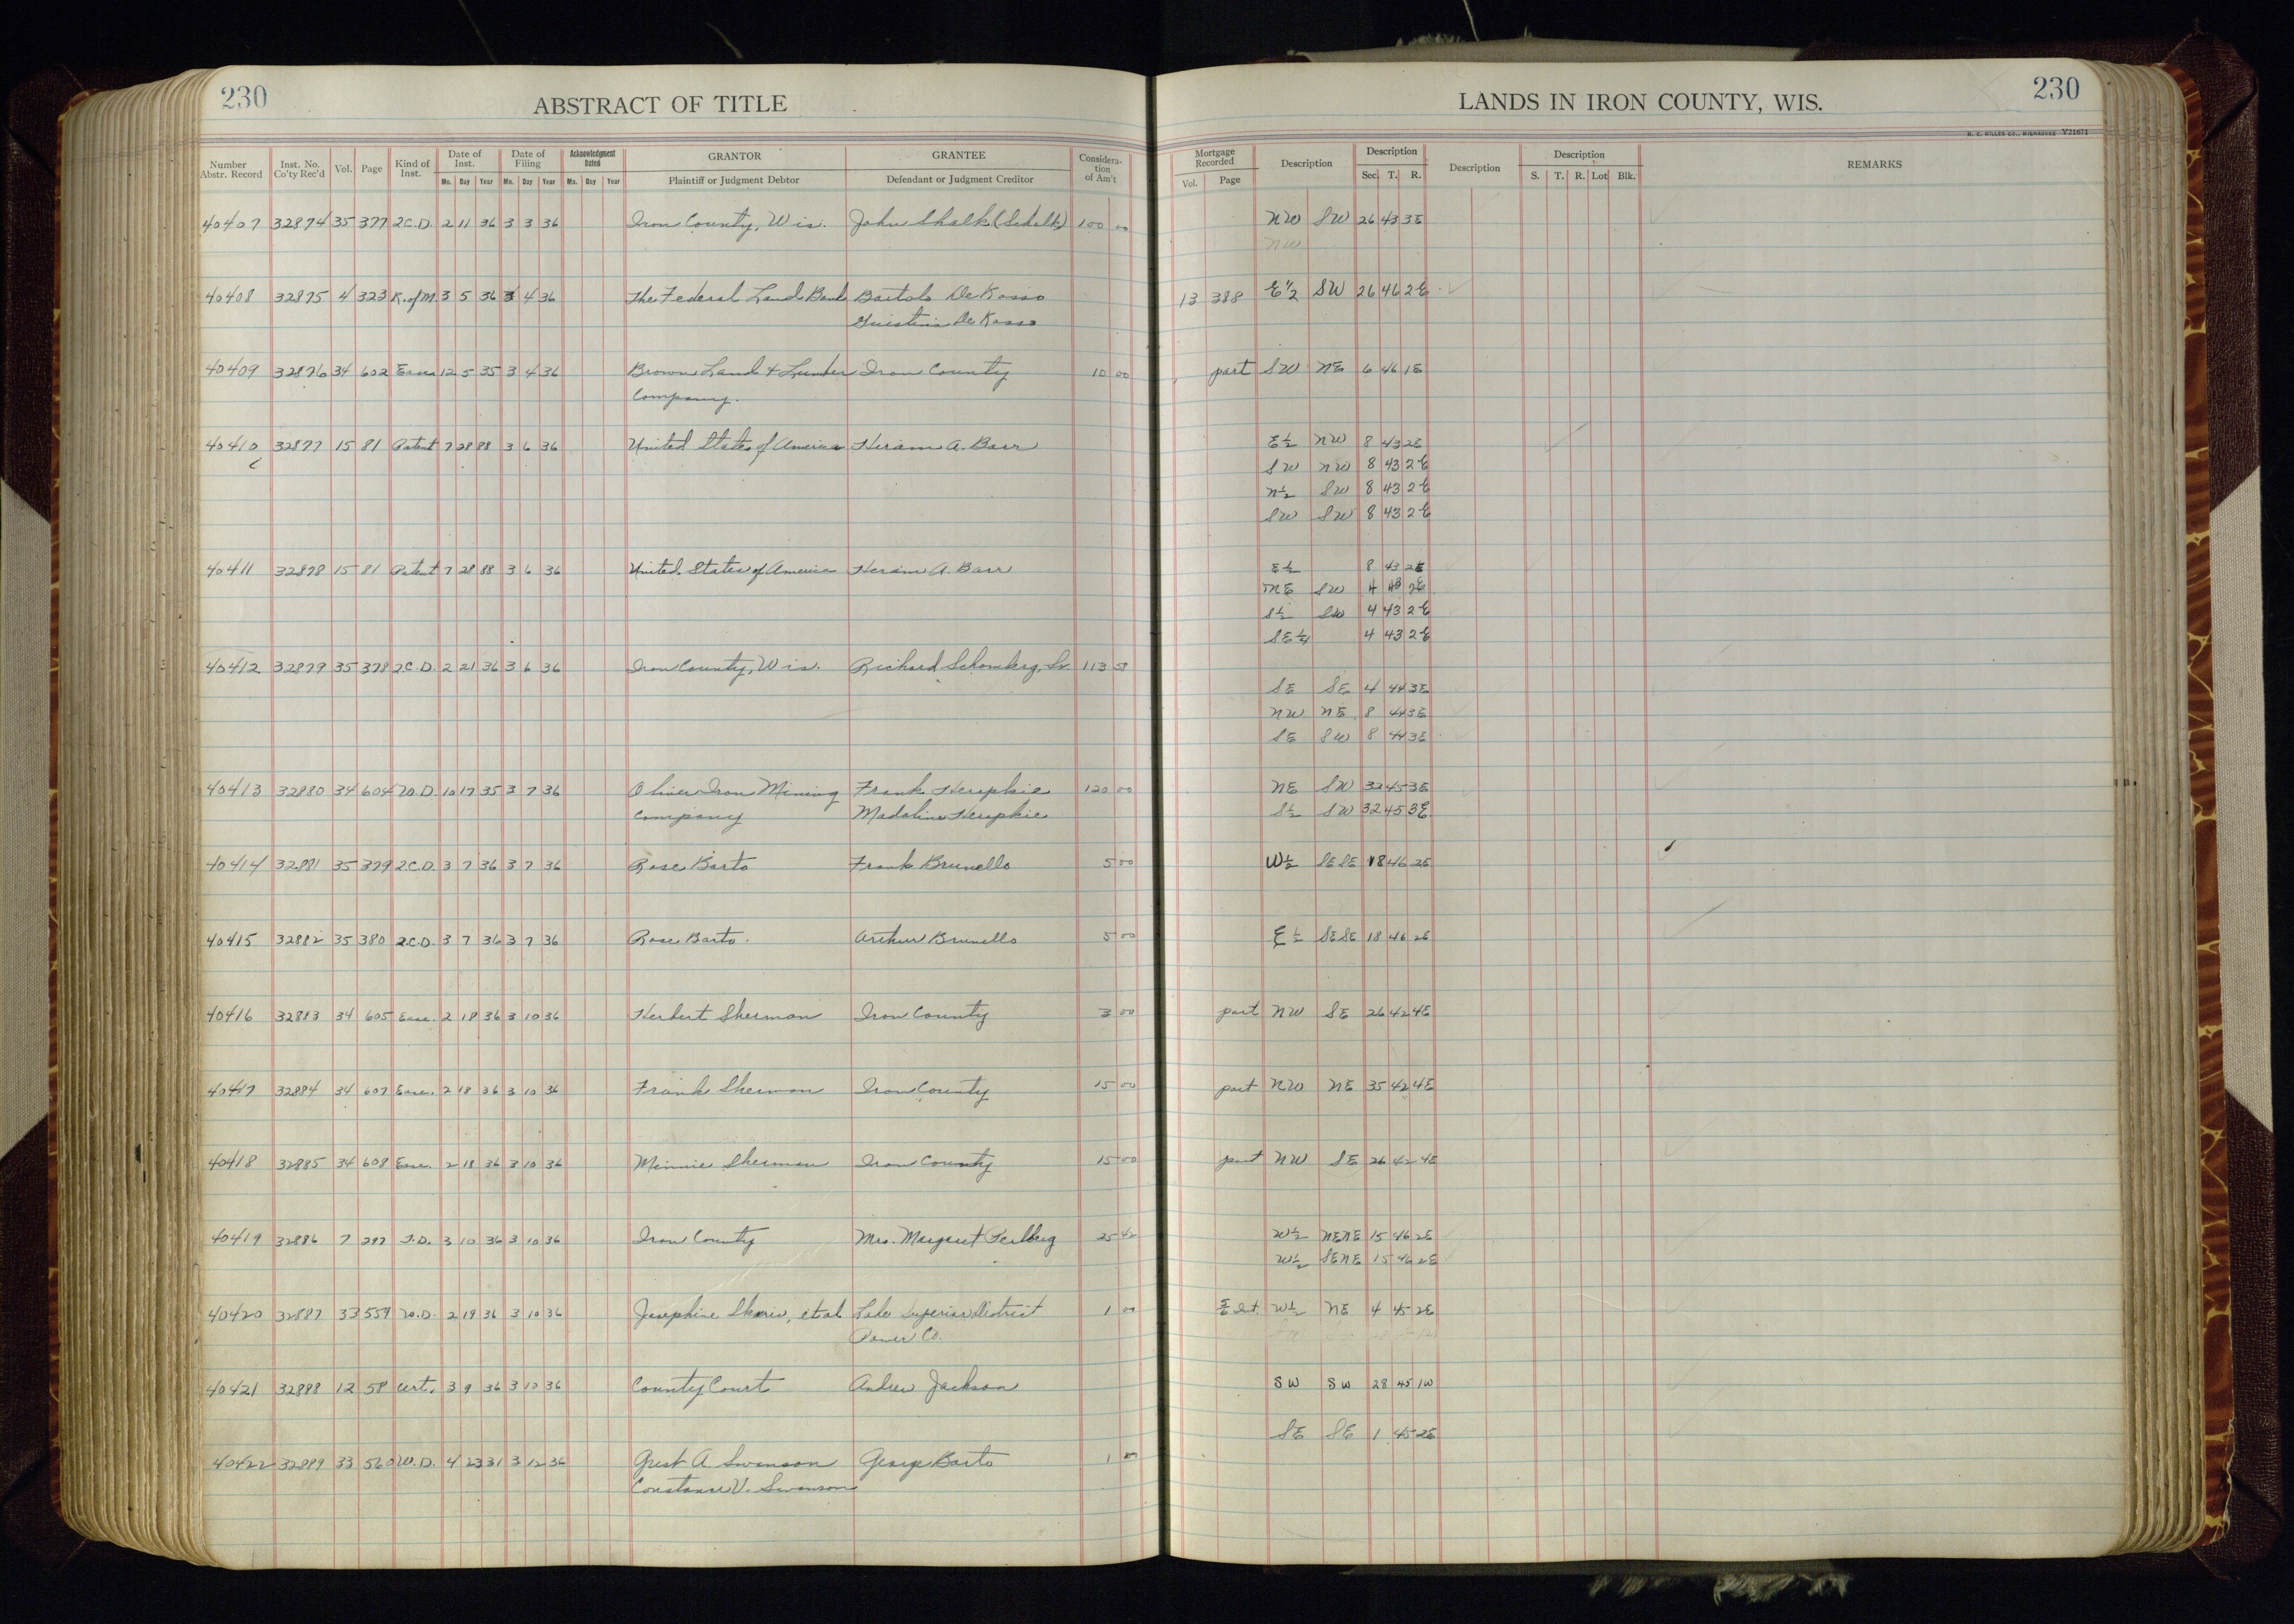 230
ABSTRACT OF TITLE
Number Abstr. Record
Inst. No. Co'ty Rec'd
Vol.
Page
Kind of Inst.
Date of Inst.
Mo. Day Year
Date of Filing
Mo. Day Year
Acknowledgment Dated
Mo. Day Year
GRANTOR
Plaintiff or Judgment Debtor
GRANTEE
Defendant or Judgment Creditor
Considera-tion of Am't
40407 32874 35 377 2C.D. 2 11 36 3 3 36 Iron County, Wis. John Shalk (Schalk) 100 00
40408 32875 4 323 R. of M. 3 5 36 3 4 36 The Federal Land Bank Bartolo DeRosso
De Rosso
40409 32876 34 602 Ease 12 5 35 3 4 36 Brown Land & Lumber Iron County 10 00
Company.
40410 32877 15 81 Patent 7 28 88 3 6 36 United States of America Hiram A. Barr
40411 32878 15 81 Patent 7 28 88 3 6 36 United States of America Hiram A. Barr
40412 32879 35 378 2C.D. 2 21 36 3 6 36 Iron County, Wis. Richard Schomberg, Sr. 113
40413 32880 34 604 W.D. 10 17 35 3 7 36 Oliver Iron Mining Frank 120 00
Company
40414 32881 35 379 2C.D. 3 7 36 3 7 36 Rose Barto Frank Brunello 5 00
40415 32882 35 380 2C.D. 3 7 36 3 7 36 Rose Barto. Arthur Brunello 5 00
40416 32883 34 605 Ease. 2 18 36 3 10 36 Herbert Sherman Iron County 3 00
40417 32884 34 607 Ease. 2 18 36 3 10 36 Frank Sherman Iron County 15 00
40418 32885 34 608 Ease. 2 18 36 3 10 36 Minnie Sherman Iron County 15 00
40419 32886 7 297 T.D. 3 10 36 3 10 36 Iron County Mrs. Margaret 25 42
40420 32887 33 559 W.D. 2 19 36 3 10 36 Josephine et al Lake Superior District 1 00
Power Co.
40421 32888 12 58 Cert. 3 9 36 3 10 36 County Court Andrew Jackson
40422 32889 33 560 W.D. 4 23 31 3 12 36 A. Swanson George Barto 1 00
Constance V. Swanson
230
LANDS IN IRON COUNTY, WIS.
H. C. MILLER CO., MILWAUKEE V21671
Mortgage Recorded
Vol. Page
Description
Description
Sec. T. R.
Description
Description
S. T. R. Lot Blk.
REMARKS
NW SW 26 43 3E
NW
13 388 E½ SW 26 46 2E
part SW NE 6 46 1E
E½ NW 8 43 2E
SW NW 8 43 2E
N½ SW 8 43 2E
SW SW 8 43 2E
E½ 8 43 2E
NE SW 4 43 2E
S½ SW 4 43 2E
SE¼ 4 43 2E
SE SE 4 44 3E
NW NE 8 44 3E
SE SW 8 44 3E
NE SW 32 45 3E
S½ SW 32 45 3E
W½ SESE 18 46 2E
E½ SESE 18 46 2E
part NW SE 26 42 4E
part NW NE 35 42 4E
part NW SE 26 42 4E
W½ NENE 15 46 2E
W½ SENE 15 46 2E
Int. W½ NE 4 45 2E
SW SW 28 45 1W
SE SE 1 45 2E